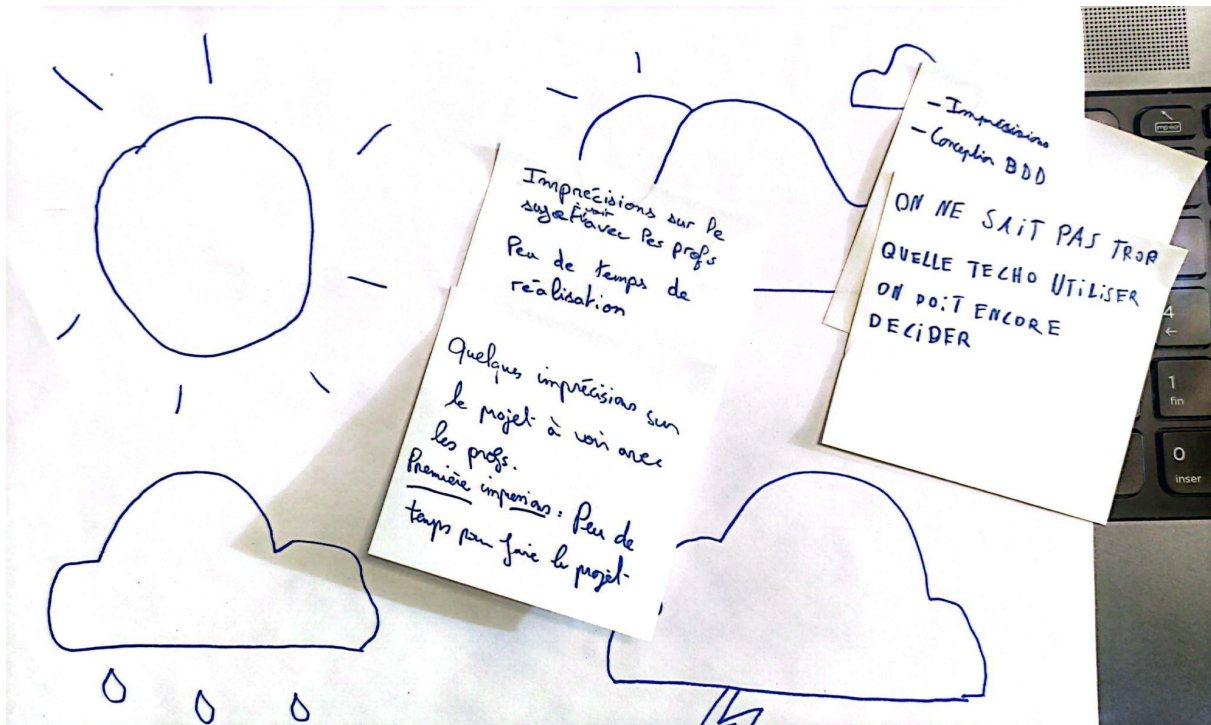 Imprécisions sur le
sujet à voir avec les profs
Peu de temps de
réalisation
Quelques imprécisions sur
le projet à voir avec
les profs.
Première impression : Peu de
temps pour faire le projet
- Imprécisions
- Conception BDD
ON NE SAiT PAS TROP
QUELLE TECHO UTiLiSER
ON DOiT ENCORE
DECiDER
impr écr
4
←
1
fin
0
inser